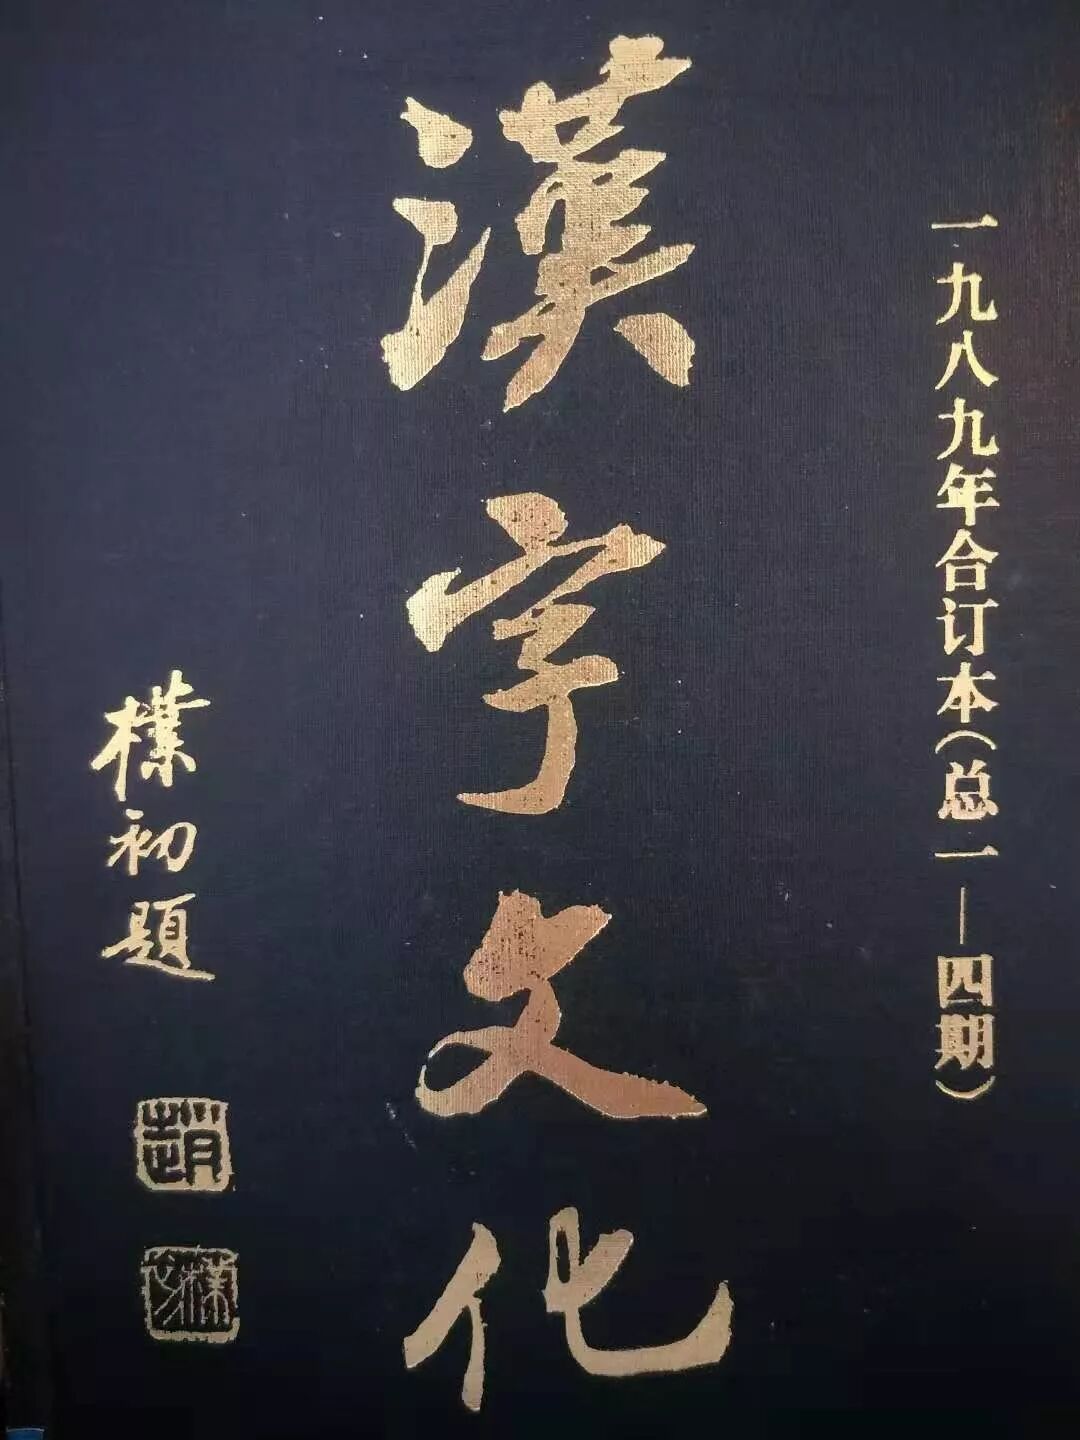 一九八九年合订本(总一—四期)
漢字文化
樸初題
趙
樸初